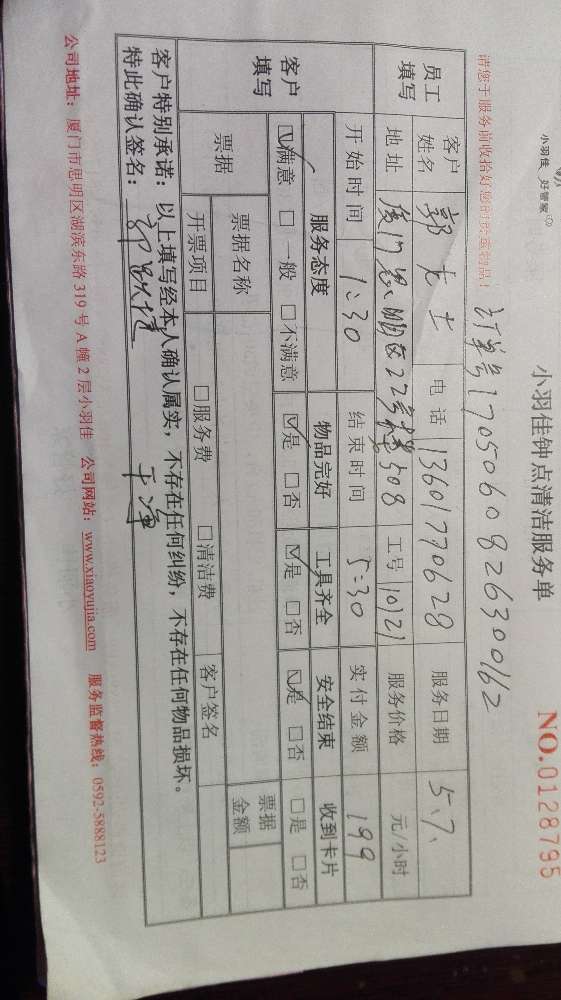 小羽佳 好管家
小羽佳钟点清洁服务单
NO.0128795
请您于服务前收拾好您的贵重物品!
订单号170506082630016２
员工填写
客户姓名 郭女士 电话 13601770628 服务日期 5.7.
地址 厦门思明区22号楼508 工号 10121 服务价格 元/小时
开始时间 1:30 结束时间 5:30 实付金额 199
客户填写
服务态度 物品完好 工具齐全 安全结束 收到卡片
☑满意 □一般 □不满意 ☑是 □否 ☑是 □否 ☑是 □否 □是 □否
票据 票据名称 票据金额
开票项目 □服务费 □清洁费 客户签名
客户特别承诺:以上填写经本人确认属实,不存在任何纠纷,不存在任何物品损坏。
特此确认签名: 干净
公司地址:厦门市思明区湖滨东路 319 号 A 幢 2 层小羽佳 公司网站:www.xiaoyujia.com 服务监督热线:0592-5888123